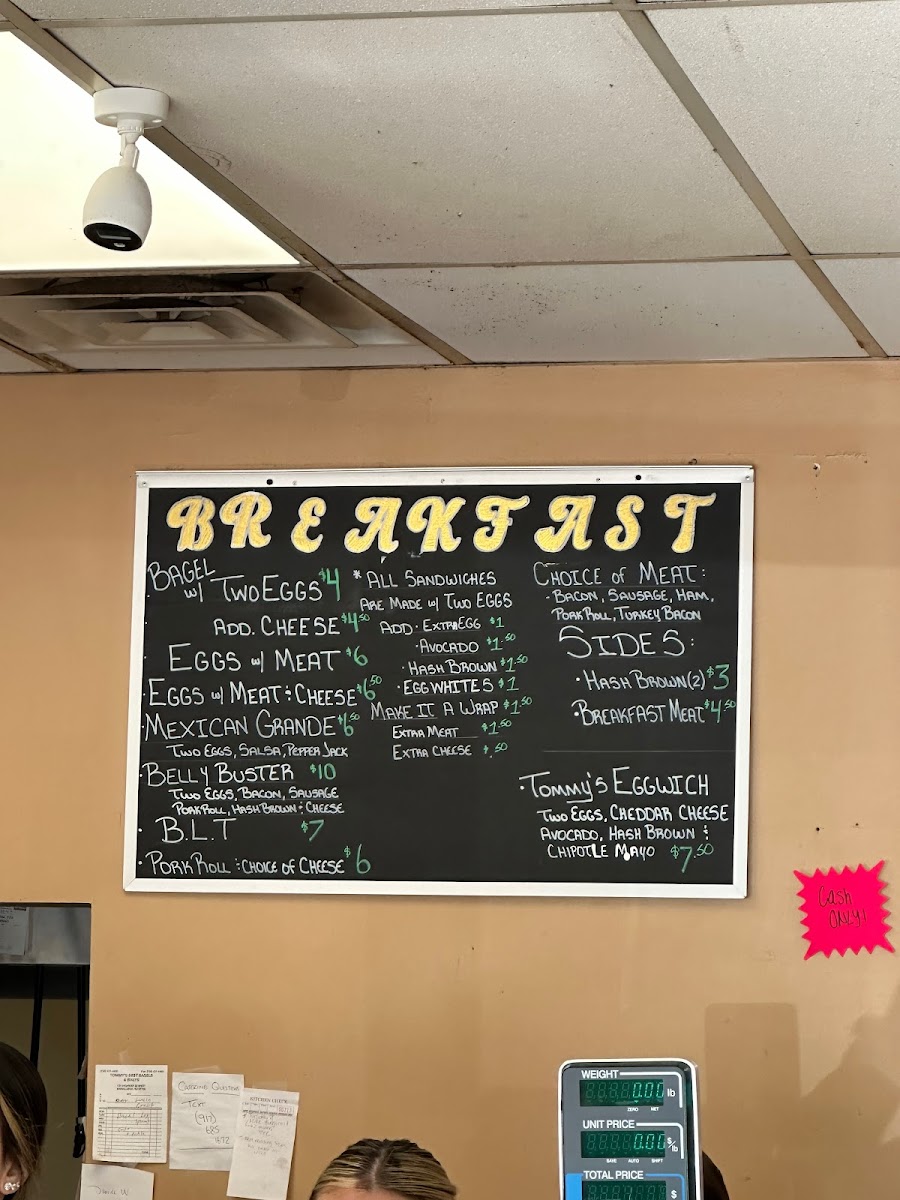 BREAKFAST
BAGEL
w/ TWO EGGS $4
ADD. CHEESE $4.50
EGGS w/ MEAT $6
· EGGS w/ MEAT & CHEESE $6.50
· MEXICAN GRANDE $6.50
TWO EGGS, SALSA, PEPPER JACK
· BELLY BUSTER $10
TWO EGGS, BACON, SAUSAGE
PORKROLL, HASHBROWN & CHEESE
· B.L.T $7
· PORKROLL & CHOICE OF CHEESE $6
* ALL SANDWICHES
ARE MADE w/ TWO EGGS
ADD · EXTRA EGG $1
· AVOCADO $1.50
· HASH BROWN $1.50
· EGG WHITES $1
MAKE IT A WRAP $1.50
EXTRA MEAT $1.50
EXTRA CHEESE $.50
CHOICE OF MEAT:
· BACON, SAUSAGE, HAM,
PORK ROLL, TURKEY BACON
SIDES:
· HASH BROWN (2) $3
· BREAKFAST MEAT $4.50
· TOMMY'S EGGWICH
TWO EGGS, CHEDDAR CHEESE
AVOCADO, HASH BROWN &
CHIPOTLE MAYO $7.50
Cash
ONLY!
TEXT
(917)
685
WEIGHT
0.00 lb
ZERO NET
UNIT PRICE
0.00 $/lb
SAVE AUTO SHIFT
TOTAL PRICE
$